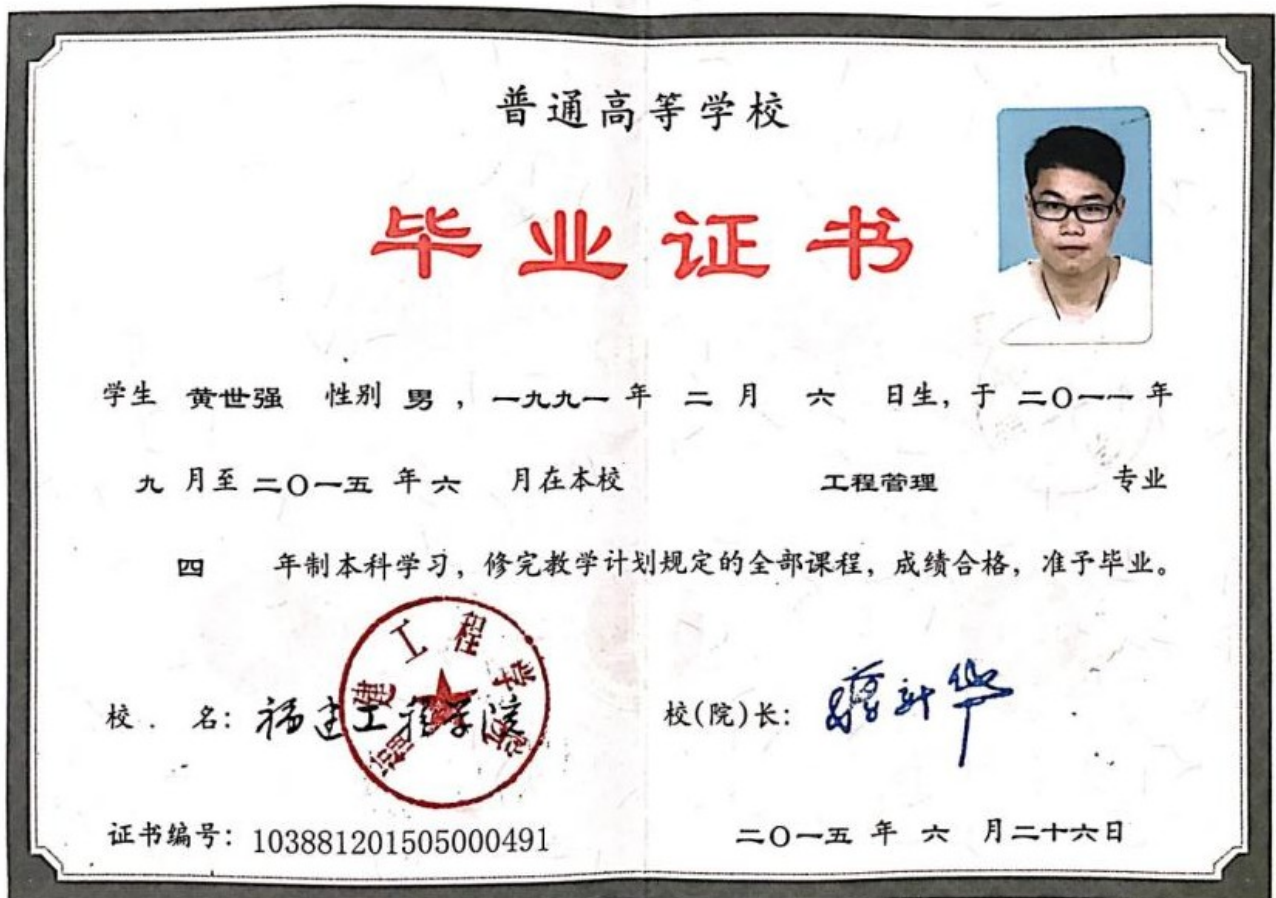 普通高等学校
毕业证书
学生 黄世强 性别 男，一九九一 年 二 月 六 日生，于 二〇一一 年
九 月至 二〇一五 年 六 月在本校 工程管理 专业
四 年制本科学习，修完教学计划规定的全部课程，成绩合格，准予毕业。
福建工程学院
校 名：福建工程学院
校(院)长：蒋新华
证书编号：103881201505000491
二〇一五 年 六 月二十六日